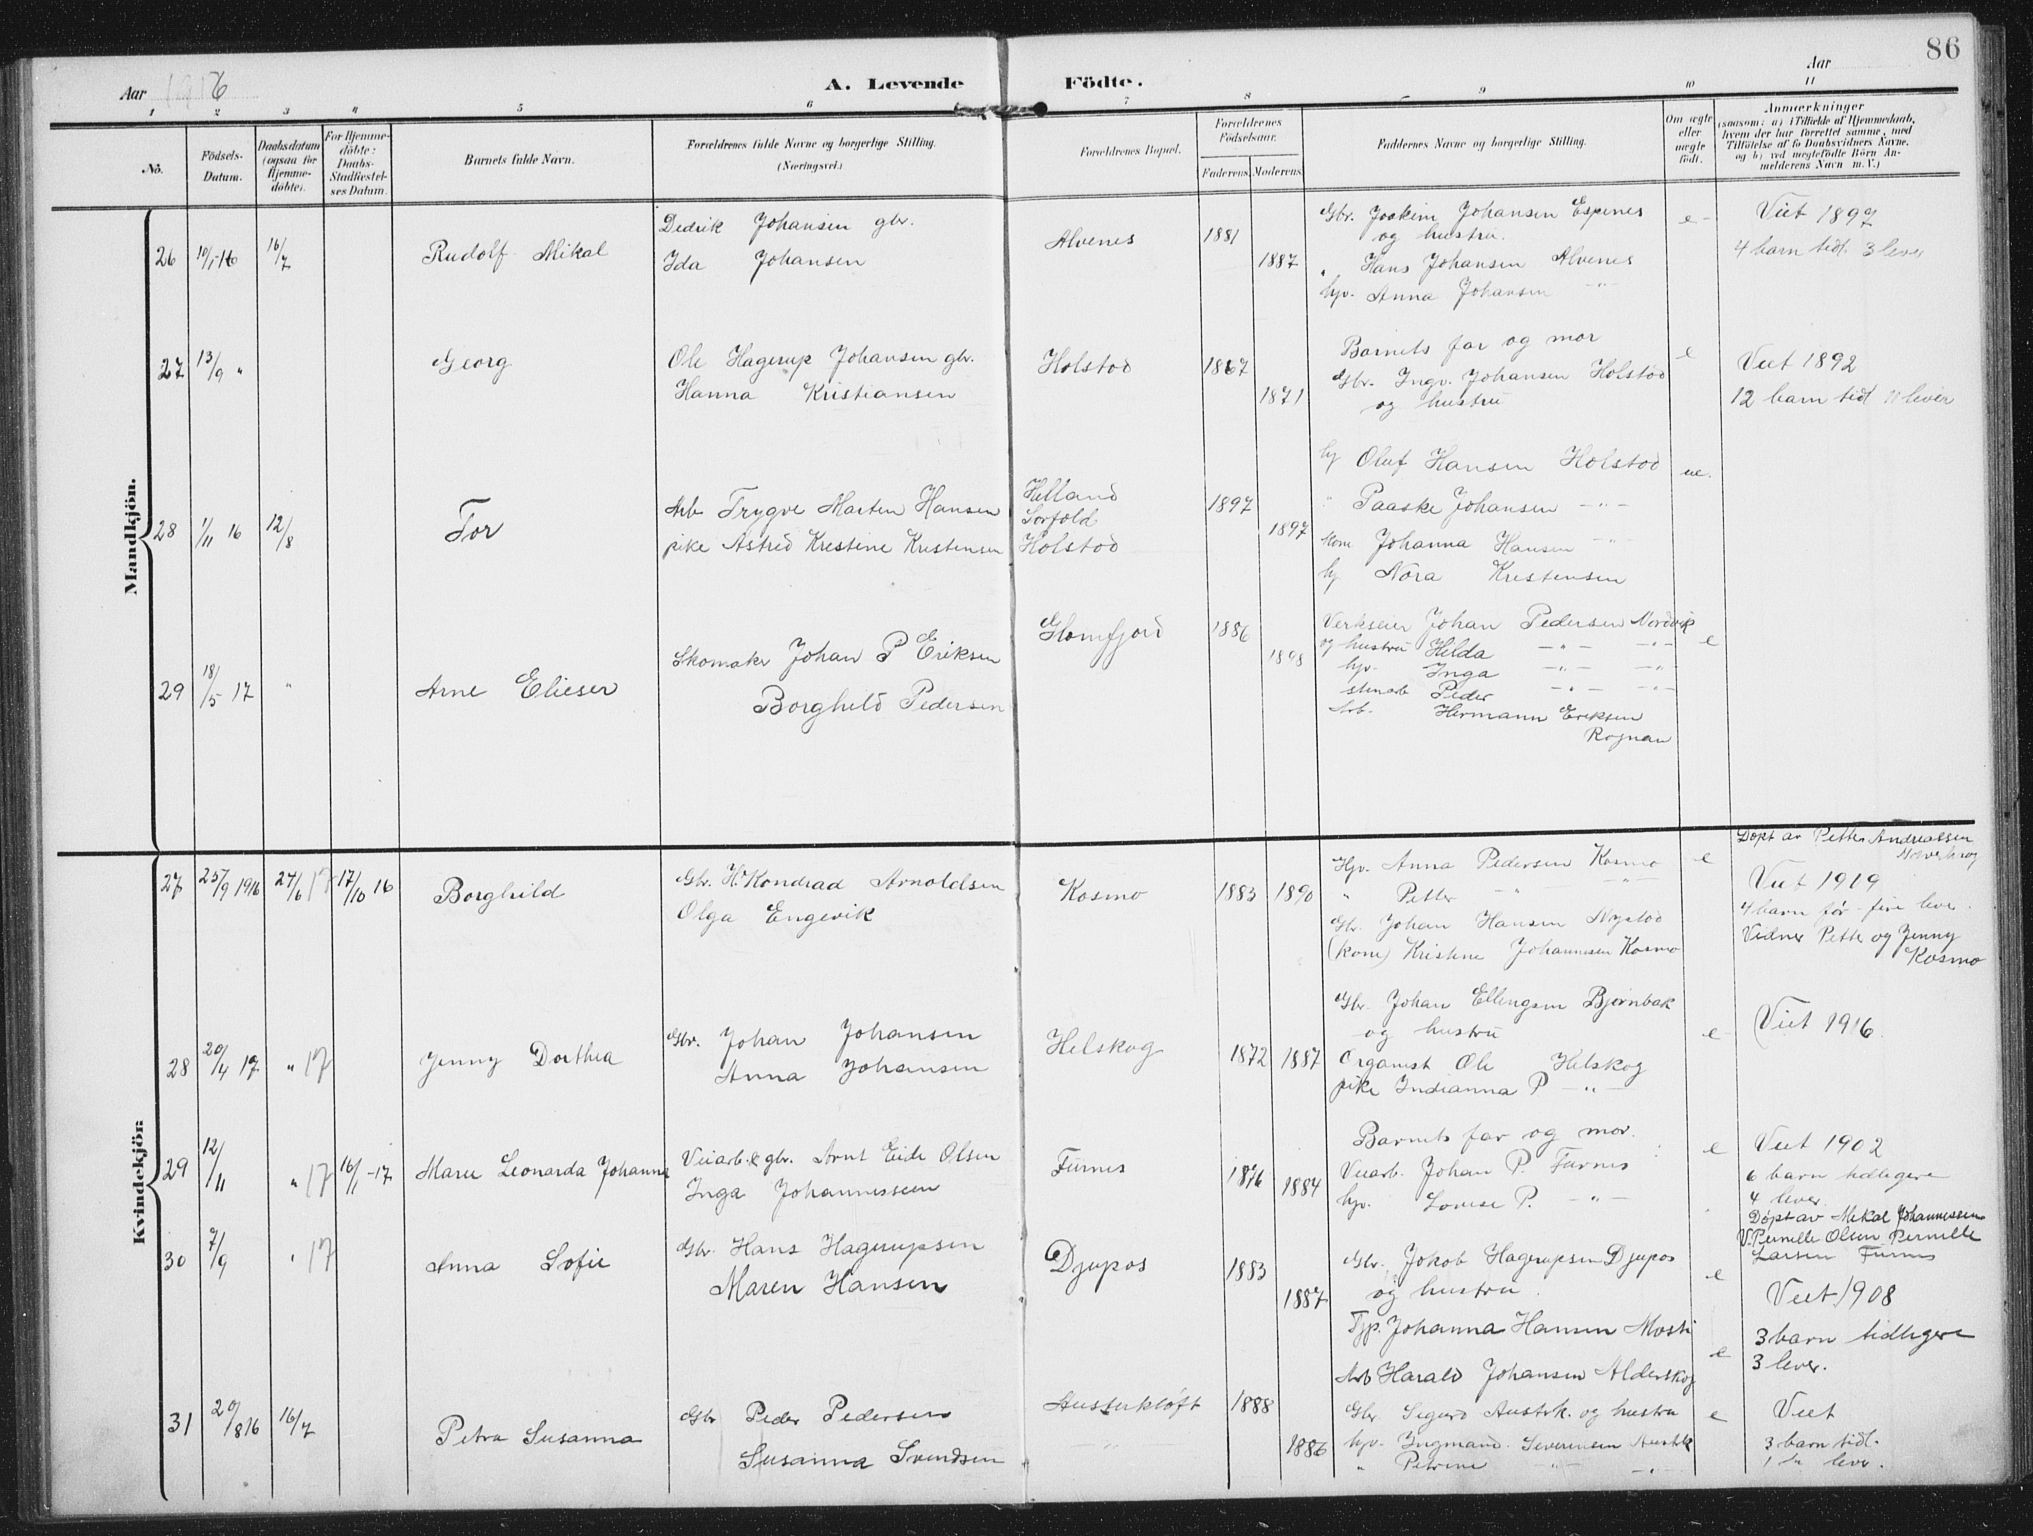 86
Aar 1916
A. Levende Födte.
Aar
1 2 3 4 5 6 7 8 9 10 11
No.
Födsels-Datum.
Daabsdatum (ogsaa for Hjemme-döbte).
For Hjemme-döbte: Daabs-Stadfæstel-ses Datum.
Barnets fulde Navn.
Forældrenes fulde Navne og borgerlige Stilling. (Næringsvei.)
Forældrenes Bopæl.
Forældrenes Födselsaar.
Faderens. Moderens.
Faddernes Navne og borgerlige Stilling.
Om ægte eller uægte født.
Anmærkninger
(saasom: a) i Tilfælde af Hjemmedaab, hvem der har forrettet samme, med Tilföielse af to Daabsvidners Navne, og b) ved uægtefödte Börn An-melderens Navn m. V.)
Mandkjön.
26 10/1-16 16/7 Rudolf Mikal
Dedrik Johansen gbr.
Ida Johansen
Alvenes 1881 1887
Gbr. Joakim Johansen Espenes
og hustru.
" Hans Johansen Alvenes
hjv. Anna Johansen - " -
e
Viet 1897
4 barn tidl. 3 lever
27 13/9 " Georg
Ole Hagerup Johansen gbr.
Hanna Kristiansen
Holstod 1867 1871
Barnets far og mor
Gbr. Ingv. Johansen Holstod
og hustru
e
Viet 1892
12 barn tidl 11 lever
28 1/11 16 12/8 Tor
Arb Trygve Marten Hansen
pike Astrid Kristine Kristensen
Helland
Sorfold
Holstod
1897 1897
Oluf Hansen Holstod
" Paaske Johansen - " -
Kone Johanna Hansen - " -
Nora Kristensen
ue.
29 18/5 17 " Arne Elieser
Skomaker Johan P Eriksen
Borghild Pedersen
Glomfjord 1886 1898
Verkseier Johan Pedersen Nordvik
og hustru Helda - " - - " -
hjv. Inga - " - - " -
stenarb Peder - " - - " -
Arb. Hermann Eriksen
Rognan
e
Kvindekjön
27 25/9 1916 24/6 17 17/10 16 Borghild
Gbr. H. Kondrad Arnoldsen
Olga Engevik
Kosmo 1883 1890
Hjv. Anna Pedersen Kosmo
" Petter " "
Gbr. Johan Hansen Nystod
(kone) Kristine Johannesen Kosmo
e
Døpt av Petter Andreassen
Viet 1919
4 barn før - fire lever.
Vidner Petter og Jenny
Kosmo
28 20/4 17 " 17 Jenny Dorthea
Gbr. Johan Johansen
Anna Johansen
Helskog 1872 1887
Gbr. Johan Ellingsen Bjørnbak
og hustru
Organist Ole Helskog
pike Indianna P - " -
e
Viet 1916.
29 12/11 " 17 16/1-17 Marie Leonarda Johanna
Veiarb. & gbr. Arnt Eide Olsen
Inga Johannessen
Furnes 1876 1884
Barnets far og mor.
Veiarb. Johan P. Furnes
hjv. Lovise P. - " -
e
Viet 1902
6 barn tidligere
4 lever.
Døpt av Mikal Johannessen
V. Pernille Olsen Pernille
Larsen Furnes
30 7/9 " 17 Anna Sofie
Gbr. Hans Hagerupsen
Maren Hansen
Djupos 1883 1887
Gbr. Jokob Hagerupsen Djupos
og hustru.
Tjp. Johanna Hansen Mosti
Arb Harald Johansen Alderskog
e
e
Viet 1908
3 barn tidligere
3 lever.
31 20/8 16 16/7 Petra Susanna
Gbr Peder Pedersen
Susanna Svendsen
Austerkløft 1888 1886
Gbr. Sigurd Austrk. og hustru
hjv. Ingmand. Severinsen Austrk
" Petrine - " - - " -
e
Viet
3 barn tidl.
lever.